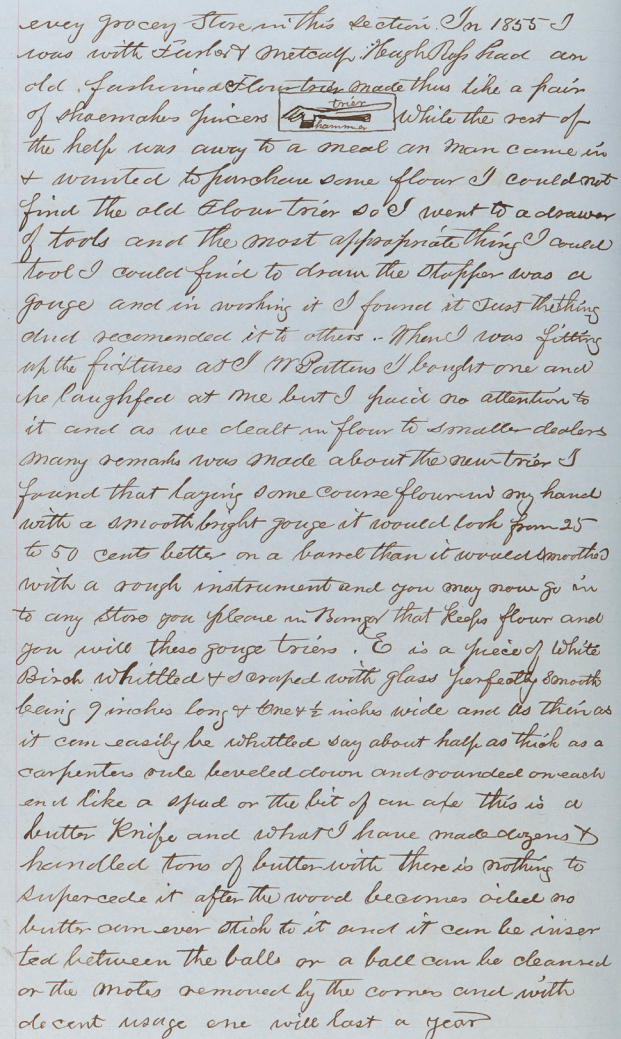 every grocey Store in this section. In 1855 I
was with Fuller & Metcalf. Hugh Ross had an
old fashined Flour trier made thus like a pair
of shoemakes pincers trier hammer While the rest of
the help was away to a meal an man came in
& wanted to purchase some flour I could not
find the old Flour trier so I went to a drawer
of tools and the most appropriate thing I could
tool I could find to draw the stopper was a
gouge and in working it I found it Just the thing
and recomended it to others.. When I was fitting
up the fixtures at J W Pattens I bought one and
he laughfed at me but I paid no attention to
it and as we dealt in flour to smaller dealers
many remarks was made about the new trier I
found that laying some course flour in my hand
with a smooth bright gouge it would look from 25
to 50 cents better on a barrel than it would smoothed
with a rough instrument and you may now go in
to any store you please in Bangor that keeps flour and
you will these gouge triers. E is a piece of White
Birch whittled & scraped with glass perfectly smooth
being 9 inches long & One & ½ inches wide and as thin as
it can easily be whittled say about half as thick as a
carpenters rule beveled down and rounded on each
end like a spud or the bit of an axe this is a
butter Knife and what I have made dozens &
handled tons of butter with there is nothing to
supercede it after the wood becomes oiled no
butter can ever stick to it and it can be inser
ted between the balls or a ball can be cleansed
or the motes removed by the corners and with
decent usage one will last a year